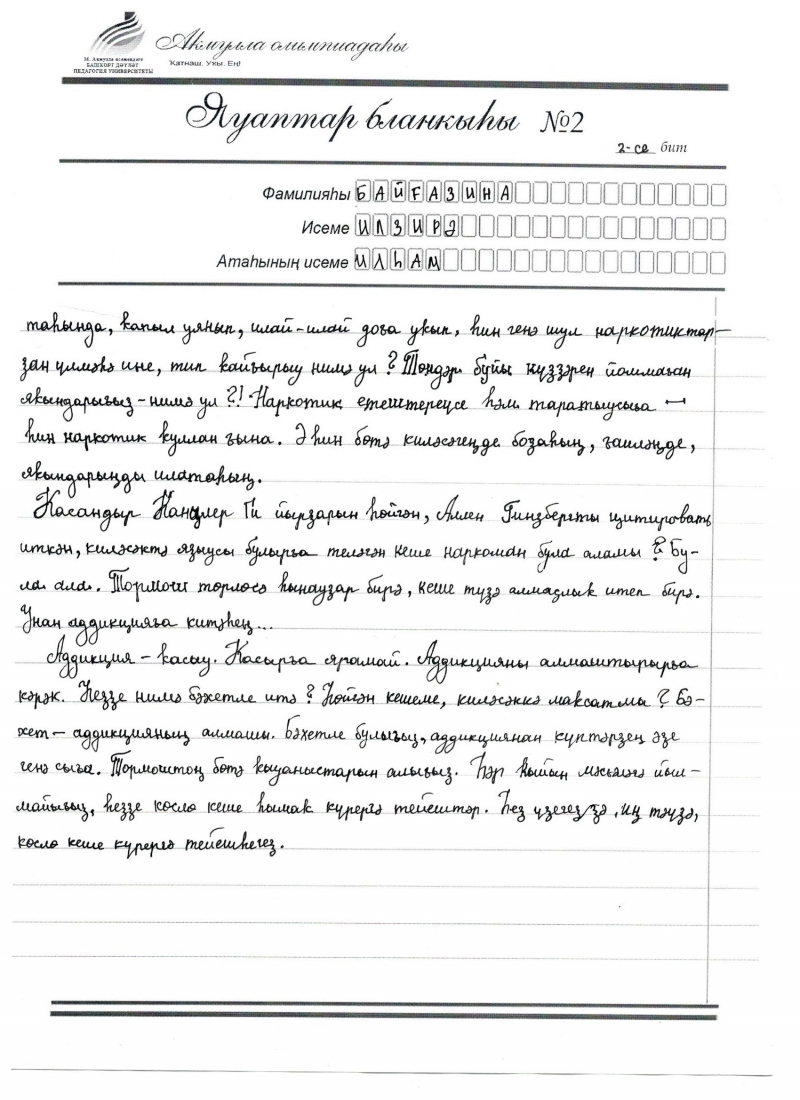 М. Аҡмулла исемендәге
БАШҠОРТ ДӘҮЛӘТ
ПЕДАГОГИЯ УНИВЕРСИТЕТЫ
Аҡмулла олимпиадаһы
Ҡатнаш. Уҡы. Ең!
Яуаптар бланкыһы №2
2-се бит
Фамилияһы БАЙҒАЗИНА
Исеме ИЛЗИРӘ
Атаһының исеме ИЛҺАМ
таһында, ҡапыл уянып, илай-илай доға уҡып, һин генә шул наркотиктар-
ҙан үлмәһә ине, тип ҡайғырыу нимә ул? Төндәр буйы күҙҙәрен йоммаған
яҡындарығыҙ - нимә ул?! Наркотик етештереүсе һәм таратыусыға —
һин наркотик ҡуллан ғына. Ә һин бөтә киләсәгеңде боҙаһың, ғаиләңде,
яҡындарыңды илатаһың.
Ҡасандыр Канцлер Ги йырҙарын һөйгән, Аллен Гинзбергты цитировать
иткән, киләсәктә яҙыусы булырға теләгән кеше наркоман була аламы? Бу-
ла ала. Тормош төрлөсә һынауҙар бирә, кеше түҙә алмаҫлыҡ итеп бирә.
Унан аддикцияға китәһең...
Аддикция - ҡасыу. Ҡасырға ярамай. Аддикцияны алмаштырырға
кәрәк. Һеҙҙе нимә бәхетле итә? Һөйгән кешеме, киләсәккә маҡсатмы? Бә-
хет - аддикцияның алмашы. Бәхетле булығыҙ, аддикциянан күптәрҙең әҙе
генә сыға. Тормоштоң бөтә ҡыуаныстарын алығыҙ. Һәр ҡыйын мәсьәләгә йыл-
майығыҙ, һеҙҙе көслө кеше һымаҡ күрергә тейештәр. Һеҙ үҙегеҙ ҙә, иң тәүҙә,
көслө кеше күрергә тейешһегеҙ.